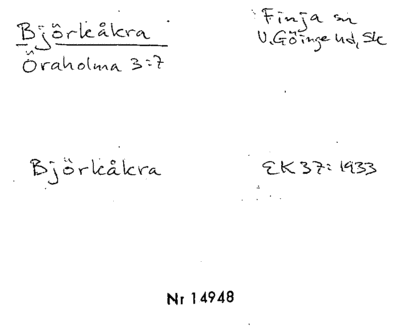 Björkåkra
Finja sn
Öraholma 3:7
V. Göinge hd, Sk
Björkåkra
EK 37: 1933
Nr 14948